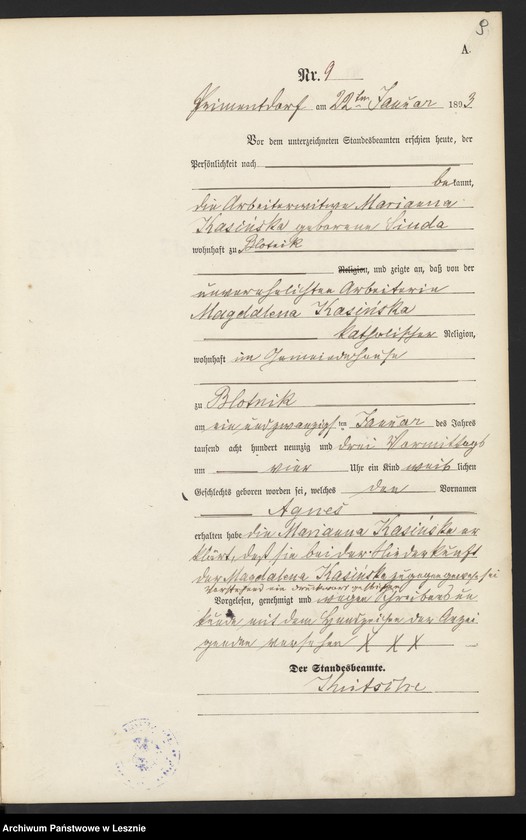 9
A.
Nr. 9
Priementdorf am 22ten Januar 1893.
Vor dem unterzeichneten Standesbeamten erschien heute, der
Persönlichkeit nach
bekannt,
die Arbeiterwitwe Marianna
Kasińska geborene Sinda
wohnhaft zu Blotnik
Religion, und zeigte an, daß von der
unverehelichten Arbeiterin
Magdalena Kasińska
katholischer Religion,
wohnhaft im Gemeindehause
zu Blotnik
am ein und zwanzigsten Januar des Jahres
tausend acht hundert neunzig und drei Vormittags
um vier Uhr ein Kind weiblichen
Geschlechts geboren worden sei, welches den Vornamen
Agnes
erhalten habe die Marianna Kasińska er
klärt, daß sie bei der Niederkunft
der Magdalena Kasińska zugegen gewesen sei
Vorstehend ein Druckwort gestrichen
Vorgelesen, genehmigt und wegen Schreibensun
kunde mit dem Handzeichen der Anzei
genden versehen X X X
Der Standesbeamte.
Archiwum Państwowe w Lesznie